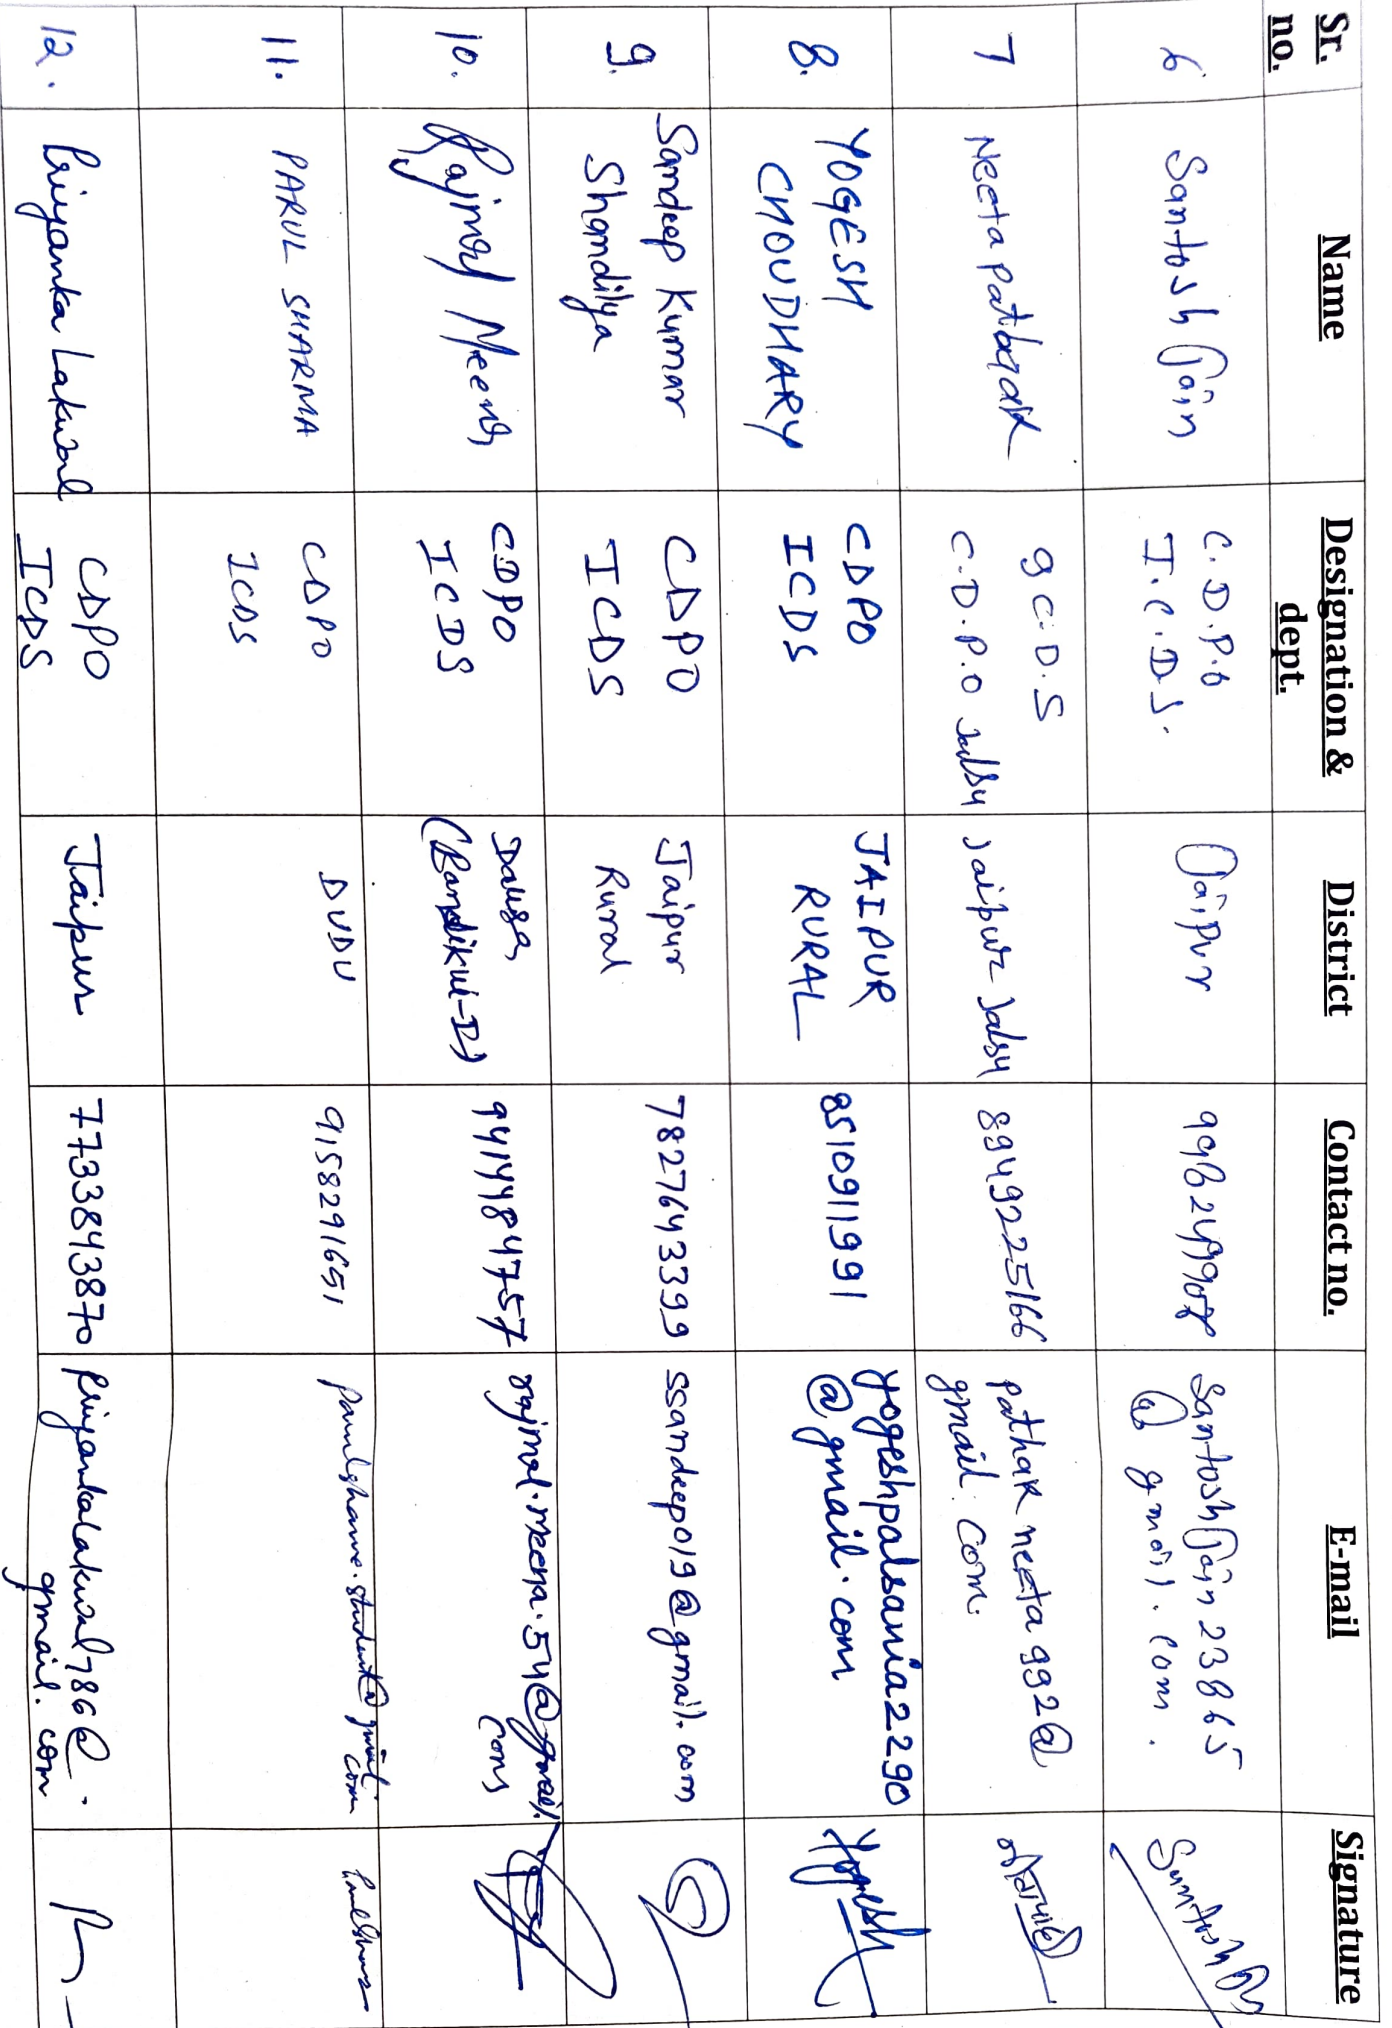 Sr. no. Name Designation & dept. District Contact no. E-mail Signature
6 Santosh Jain C.D.P.O I.C.D.S. Jaipur Santosh Jain 23865 @ gmail.com.
7 Neeta Pathak C.D.S C.D.P.O Jaipur 8949225166 pathak neeta 992@ gmail.com.
8. YOGESH CHOUDHARY CDPO ICDS JAIPUR RURAL 8510911991 yogeshpalsania2290 @gmail.com Yogesh
9. Sandeep Kumar Shandilya CDPO ICDS Jaipur Rural 7827643399 ssandeep019@gmail.com
10. Rajmal Meena CDPO ICDS Dausa 9414484757 rajmal.meena.54@gmail. com
11. PARUL SHARMA CDPO ICDS DUDU 9158291651
12. Priyanka Lakwal CDPO ICDS Jaipur 7733843870 Priyankalakwal786@ gmail.com